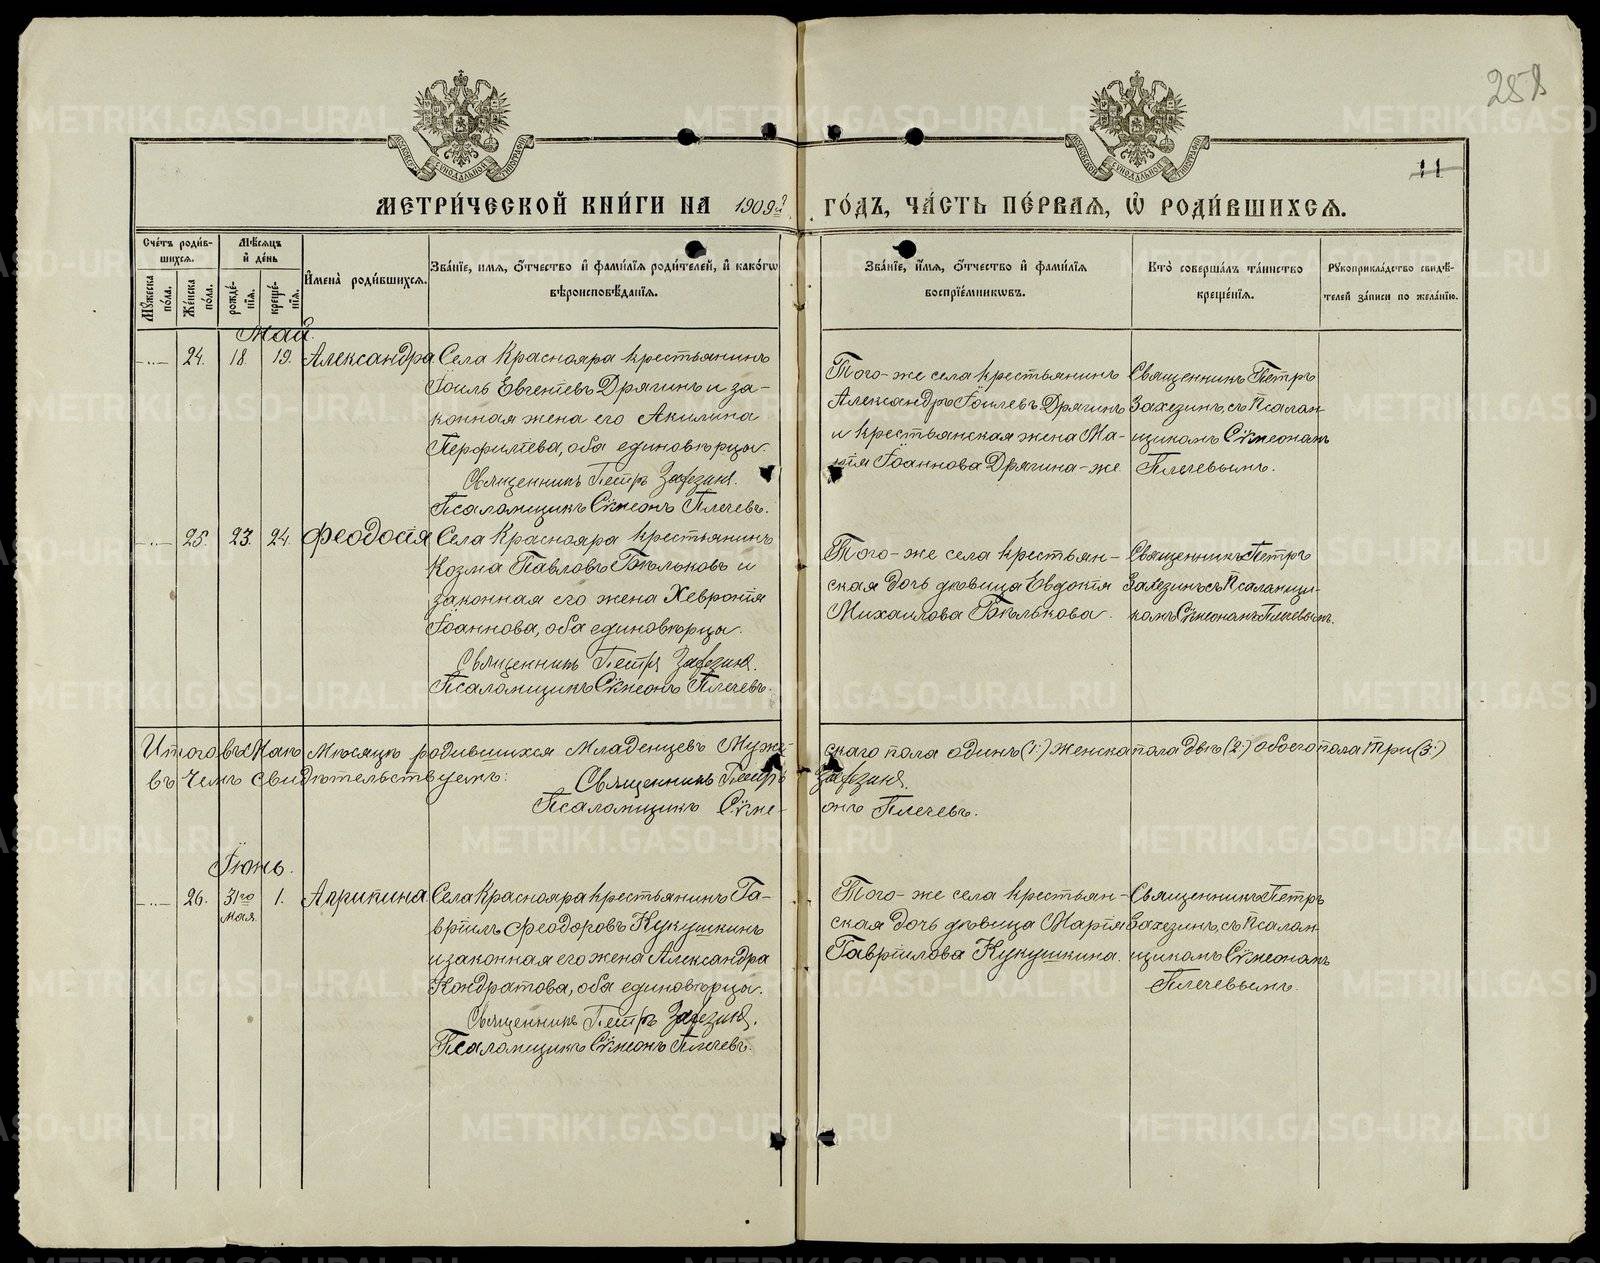 258
11
МЕТРИ́ЧЕСКОЙ КНИ́ГИ НА 1909й ГО́ДЪ, ЧА́СТЬ ПЕ́РВАЯ, Ѽ РОДИ́ВШИХСЯ.
Сче́тъ роди́в-
шихся.
Мꙋ́жеска по́ла.
Же́нска по́ла.
Мѣ́сяцъ
и҆ де́нь
рожде́-
нїя.
креще́-
нїя.
И҆мена̀ роди́вшихся.
Зва́нїе, имя, ѻ҆́тчество и҆ фами́лїѧ роди́телей, и҆ како́гѡ
вѣроисповѣ́данїя.
Зва́нїе, и҆́мя, ѻ҆́тчество и҆ фами́лїѧ
воспрїе́мниковъ.
Кто̀ соверша́лъ та́инство
креще́нїя.
Рꙋкоприкла́дство свидѣ́-
телей за́писи по жела́нїю.
Май.
24. 18. 19. Александра
Села Краснояра крестьянинъ
Іоиль Евгеніевъ Дрягинъ и за-
конная жена его Акилина
Перфиліева, оба единовѣрцы.
Священникъ Петръ Захезинъ.
Псаломщикъ Сѵмеонъ Плечевъ.
Того-же села крестьянинъ
Александръ Іоилевъ Дрягинъ
и крестьянская жена Ма-
рія Іоаннова Дрягина-же
Священникъ Петръ
Захезинъ, съ Псалом-
щикомъ Сѵмеономъ
Плечевымъ.
25. 23. 24. Феодосія
Села Краснояра крестьянинъ
Козма Павловъ Бѣльковъ и
законная его жена Хевронія
Іоаннова, оба единовѣрцы.
Священникъ Петръ Захезинъ.
Псаломщикъ Сѵмеонъ Плечевъ.
Того-же села крестьян-
ская дочь дѣвица Евдокія
Михаилова Бѣлькова.
Священникъ Петръ
Захезинъ съ Псаломщи-
комъ Сѵмеономъ Плечевымъ.
Итого въ Маѣ Мѣсяцѣ родившихся Младенцевъ Муже-
скаго пола одинъ (1:) Женска пола двѣ (2:) обоего пола три (3:)
въ Чемъ свидѣтельствуемъ:
Священникъ Петръ Захезинъ.
Псаломщикъ Сѵме-
онъ Плечевъ.
Іюнь.
26. 31го мая 1. Агрипина
Села Краснояра крестьянинъ Га-
вріилъ Феодоровъ Кукушкинъ
и законная его жена Александра
Кондратова, оба единовѣрцы.
Священникъ Петръ Захезинъ.
Псаломщикъ Сѵмеонъ Плечевъ.
Того-же села крестьян-
ская дочь дѣвица Марія
Гавріилова Кукушкина.
Священникъ Петръ
Захезинъ, съ Псалом-
щикомъ Сѵмеономъ
Плечевымъ.
METRIKI.GASO-URAL.RU